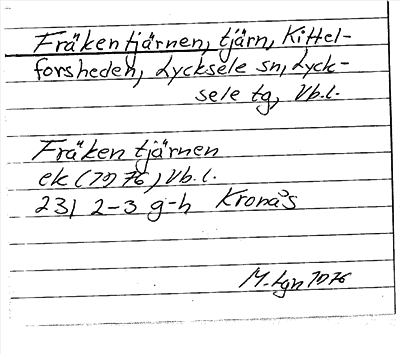 Fräkentjärnen, tjärn, Kittel-
forsheden, Lycksele sn, Lyck-
sele tg, Vb.l.
Fräkentjärnen
ek (1976) Vb.l.
231 2-3 g-h Kronås
M. Lgn 1976